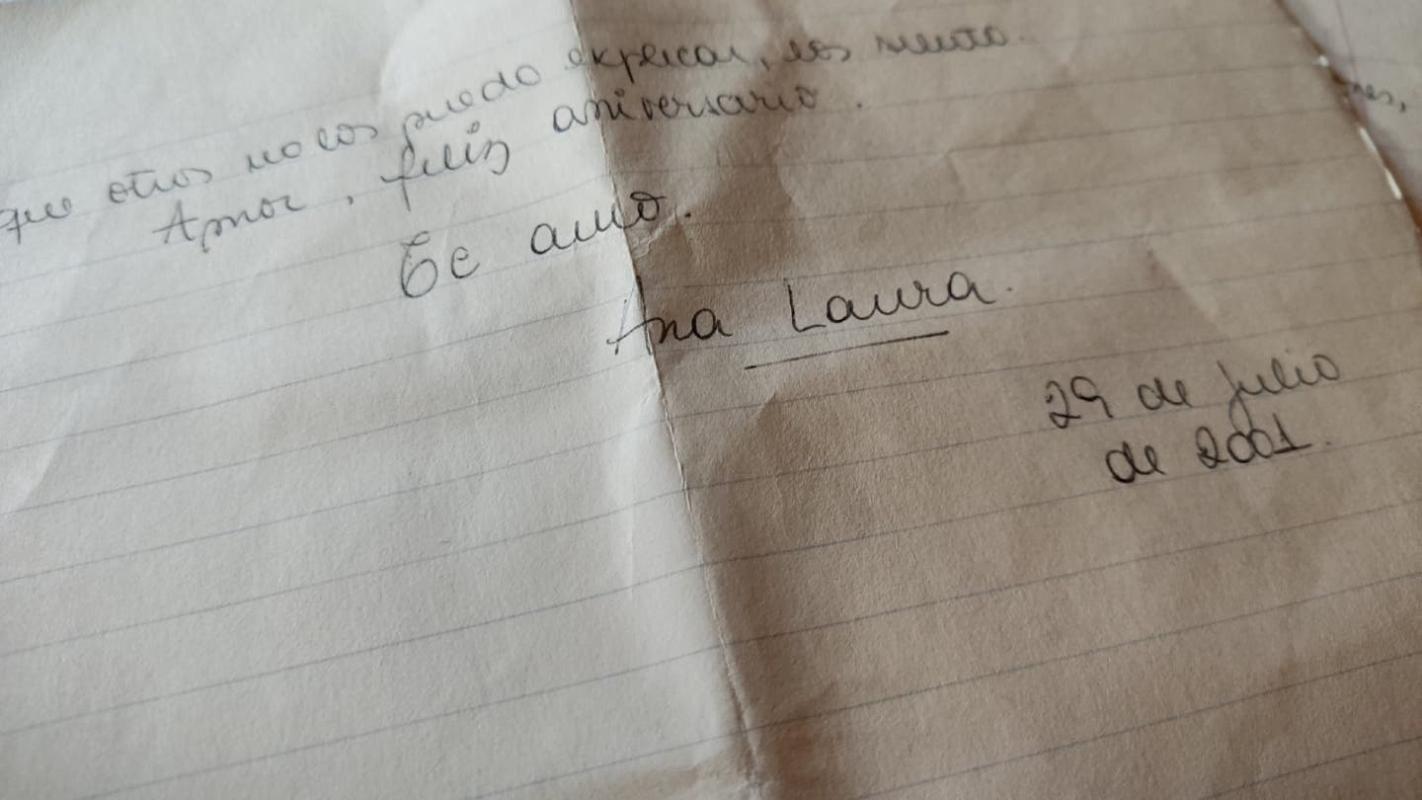 que otros no los puedo explicar, los siento.
Amor, feliz aniversario.
Te amo.
Ana Laura.
29 de julio
de 2001.